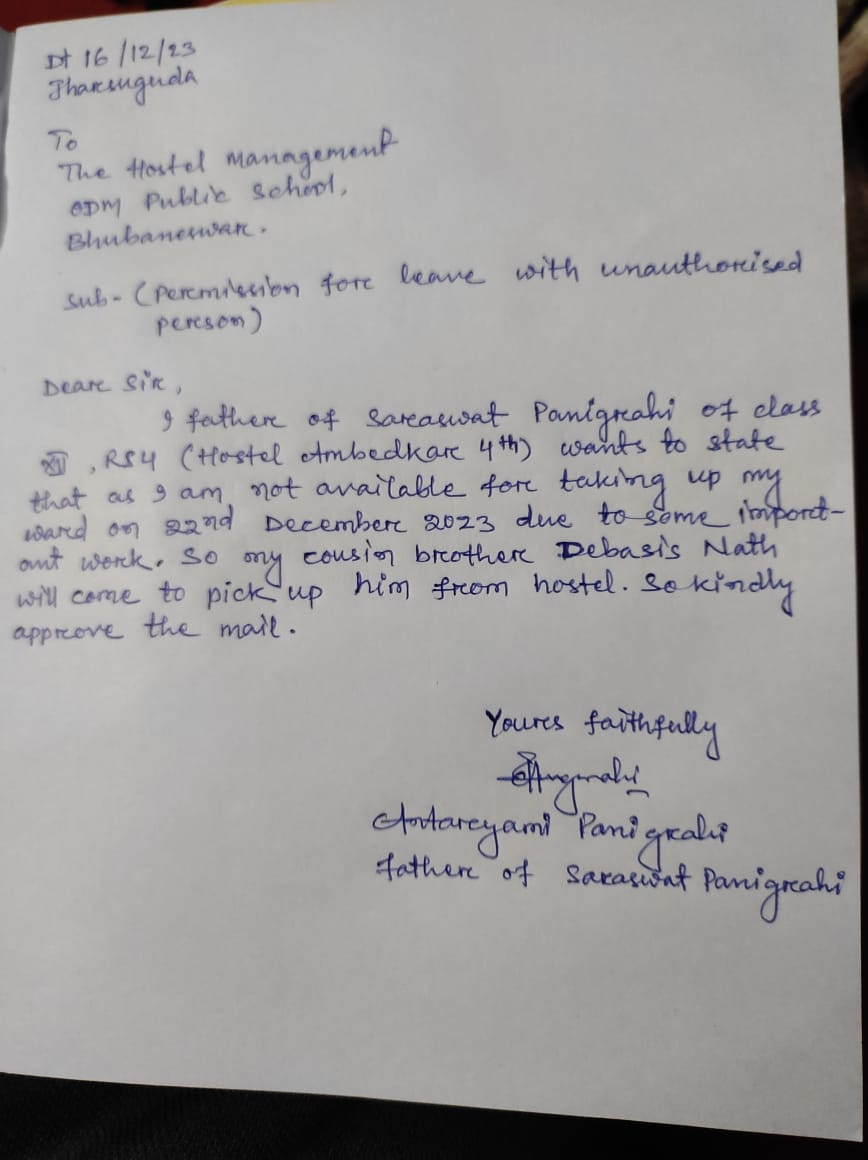 Dt 16/12/23
Jharsuguda
To
The Hostel Management
ODM Public School,
Bhubaneswar.
Sub- (Permission for leave with unauthorised
person)
Dear Sir,
I father of Saraswat Panigrahi of class
XII, RS4 (Hostel Ambedkar 4th) wants to state
that as I am not available for taking up my
ward on 22nd December 2023 due to some import-
ant work. So my cousin brother Debasis Nath
will come to pick up him from hostel. So kindly
approve the mail.
Yours faithfully
Antaryami Panigrahi
father of Saraswat Panigrahi